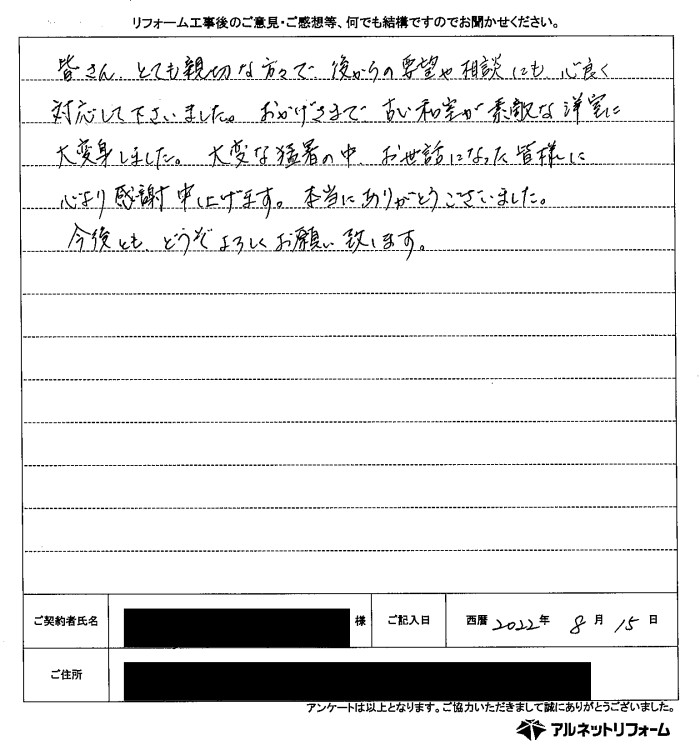 リフォーム工事後のご意見・ご感想等、何でも結構ですのでお聞かせください。
皆さん、とても親切な方々で、後からの要望や相談にも、心良く
対応して下さいました。おかげさまで、古い和室が素敵な洋室に
大変身しました。大変な猛暑の中、お世話になった皆様に
心より感謝申し上げます。本当にありがとうございました。
今後とも、どうぞよろしくお願い致します。
ご契約者氏名 様 ご記入日 西暦 2022年 8月 15日
ご住所
アンケートは以上となります。ご協力いただきまして誠にありがとうございました。
アルネットリフォーム